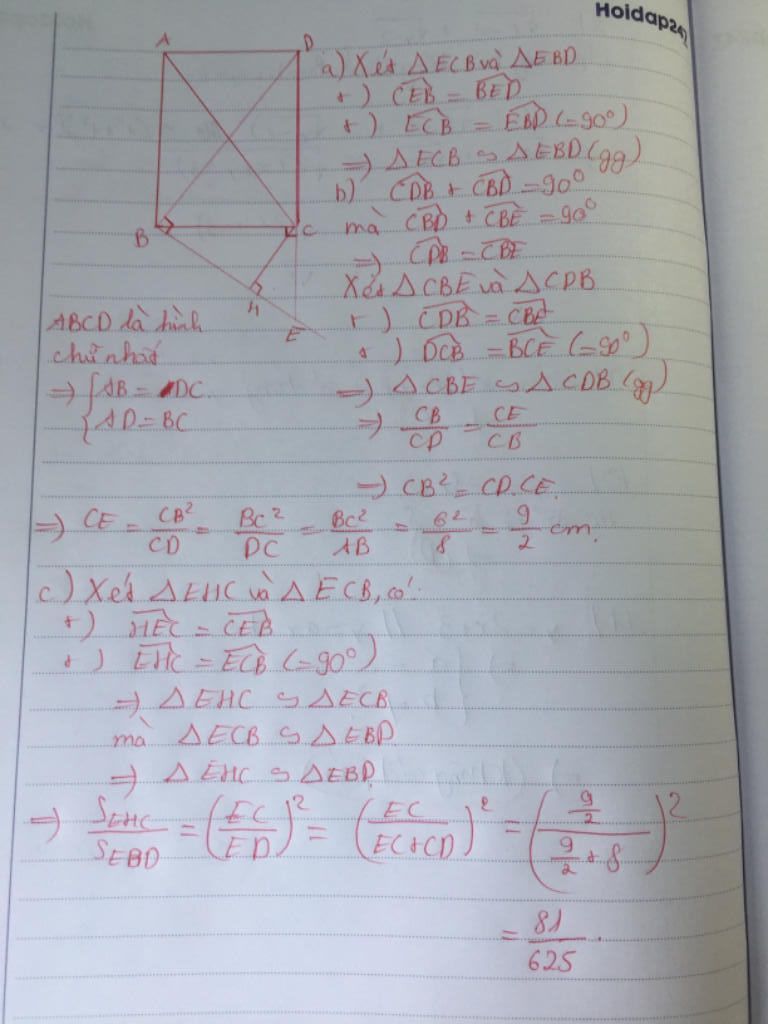 Hoidap247
A D
B C
H
E
a) Xét ΔECB và ΔEBD
+) \widehat{CEB} = \widehat{BED}
+) \widehat{ECB} = \widehat{EBD} (=90°)
=> ΔECB ∽ ΔEBD (gg)
b) \widehat{CDB} + \widehat{CBD} = 90°
mà \widehat{CBD} + \widehat{CBE} = 90°
=> \widehat{CDB} = \widehat{CBE}
Xét ΔCBE và ΔCDB
+) \widehat{CDB} = \widehat{CBE}
+) \widehat{DCB} = \widehat{BCE} (=90°)
=> ΔCBE ∽ ΔCDB (gg)
=> \frac{CB}{CD} = \frac{CE}{CB}
=> CB² = CD.CE.
ABCD là hình
chữ nhật
=> { AB = DC.
{ AD = BC
=> CE = \frac{CB²}{CD} = \frac{BC²}{DC} = \frac{BC²}{AB} = \frac{6²}{8} = \frac{9}{2} cm.
c) Xét ΔEHC và ΔECB, có:
+) \widehat{HEC} = \widehat{CEB}
+) \widehat{EHC} = \widehat{ECB} (=90°)
=> ΔEHC ∽ ΔECB
mà ΔECB ∽ ΔEBD
=> ΔEHC ∽ ΔEBD.
=> \frac{S_{EHC}}{S_{EBD}} = (\frac{EC}{ED})² = (\frac{EC}{EC+CD})² = (\frac{\frac{9}{2}}{\frac{9}{2}+8})²
= \frac{81}{625}.